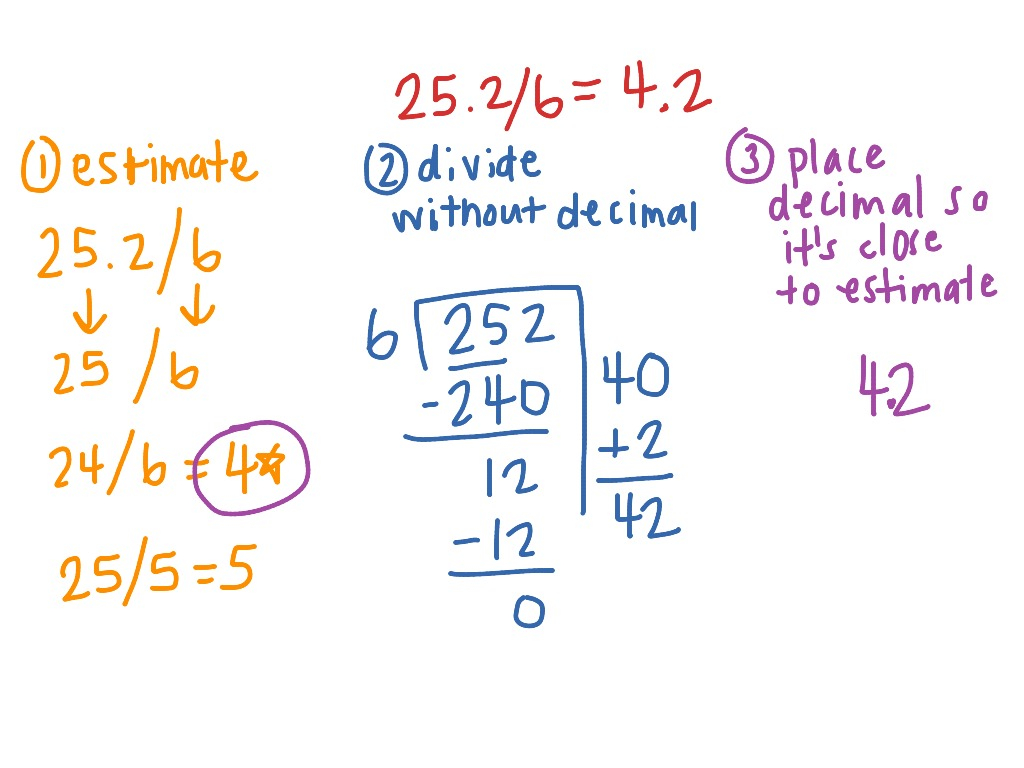 25.2/6 = 4.2
① estimate
25.2/6
↓ ↓
25 /6
24/6 = 4☆
25/5 = 5
② divide
without decimal
6 252
-240
12
-12
0
40
+2
42
③ place
decimal so
it's close
to estimate
4.2